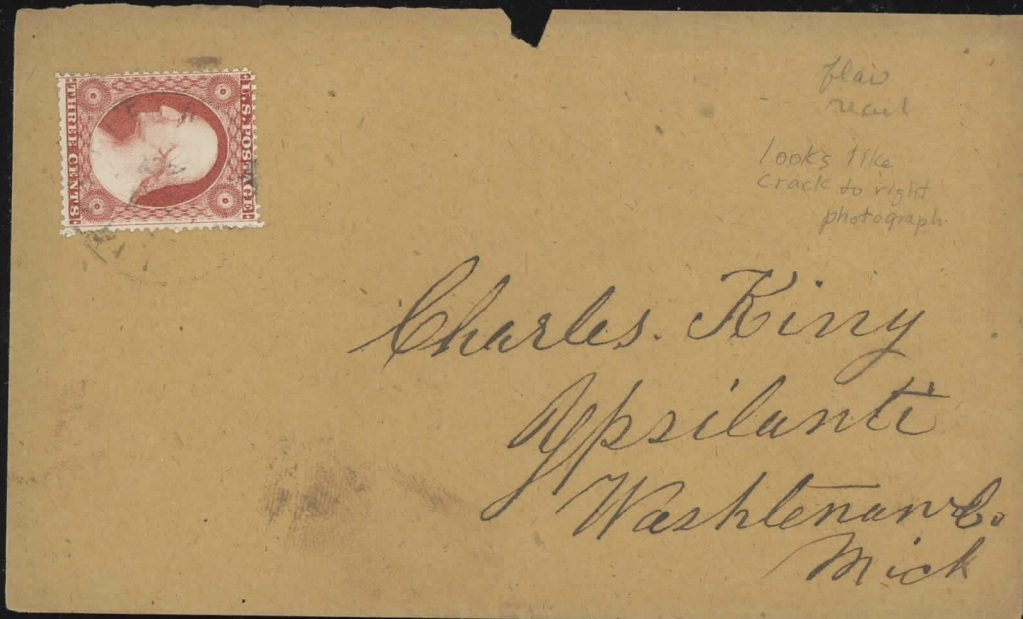 U.S. POSTAGE
THREE CENTS
looks like
crack to right
photograph
Charles. King
Ypsilanti
Washtenaw Co.
Mich